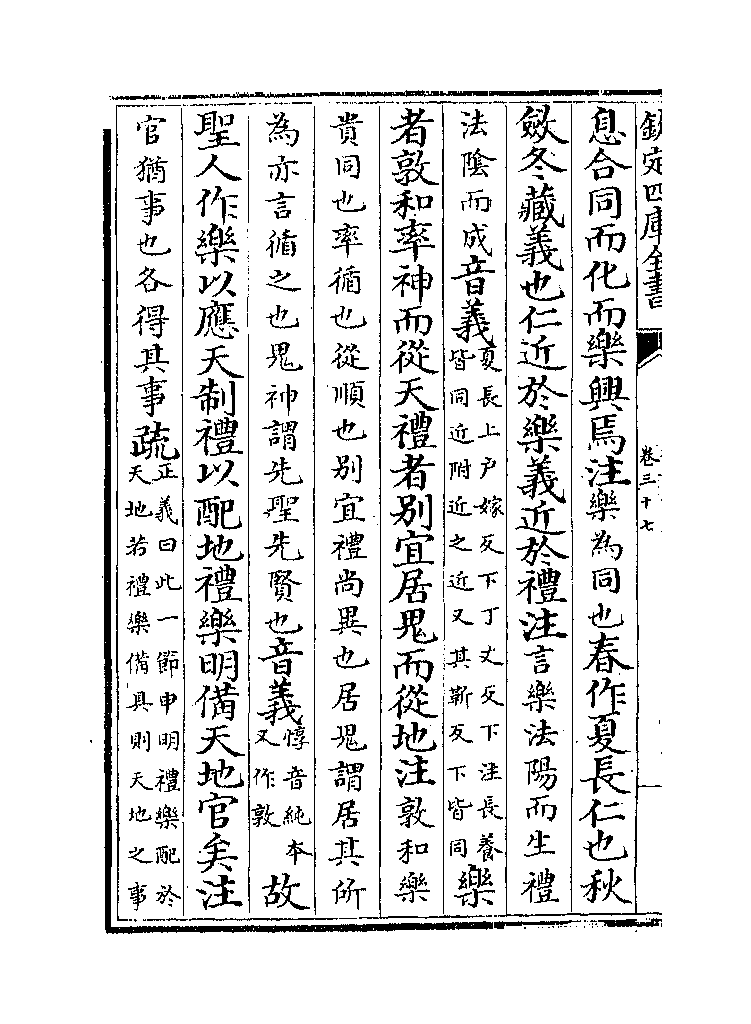 欽定四庫全書
卷三十七
息合同而化而樂興焉注樂為同也春作夏長仁也秋
斂冬藏義也仁近於樂義近於禮注言樂法陽而生禮
法陰而成音義夏長上户嫁反下丁丈反下注長養
皆同近附近之近又其靳反下皆同樂
者敦和率神而從天禮者别宜居鬼而從地注敦和樂
貴同也率循也從順也别宜禮尚異也居鬼謂居其所
為亦言循之也鬼神謂先聖先賢也音義惇音純本
又作敦故
聖人作樂以應天制禮以配地禮樂明備天地官矣注
官猶事也各得其事疏正義曰此一節申明禮樂配於
天地若禮樂備具則天地之事